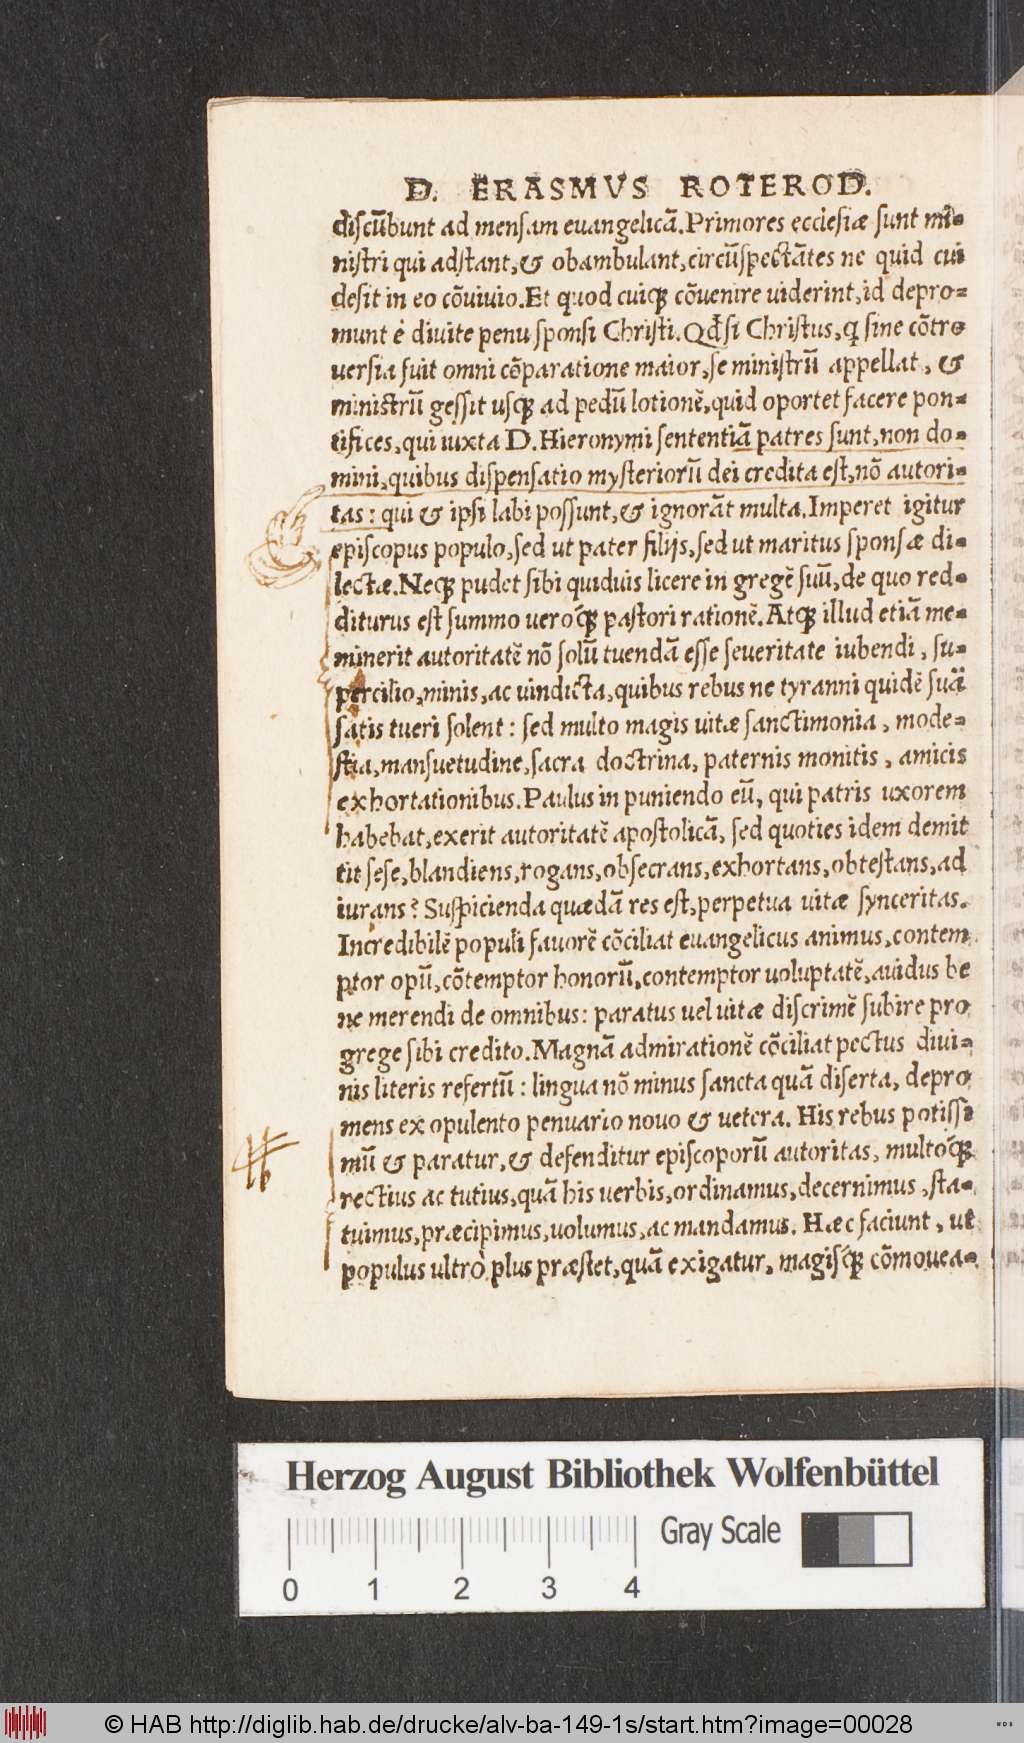 D. ERASMVS ROTEROD.
discũbunt ad mensam euangelicã. Primores ecclesiæ sunt mi-
nistri qui adstant, & obambulant, circũspectãtes ne quid cui
desit in eo cõuiuio. Et quod cuiqꝫ cõuenire uiderint, id depro-
munt è diuite penu sponsi Christi. Qđsi Christus, q sine cõtro
uersia fuit omni cõparatione maior, se ministrũ appellat, &
ministrũ gessit usqꝫ ad pedũ lotionẽ, quid oportet facere pon-
tifices, qui iuxta D. Hieronymi sententiã patres sunt, non do-
mini, quibus dispensatio mysteriorũ dei credita est, nõ autori-
tas: qui & ipsi labi possunt, & ignorãt multa. Imperet igitur
episcopus populo, sed ut pater filijs, sed ut maritus sponsæ di-
lectæ. Neqꝫ pudet sibi quiduis licere in gregẽ suũ, de quo red-
diturus est summo ueroq́ꝫ pastori rationẽ. Atqꝫ illud etiã me-
minerit autoritatẽ nõ solũ tuendã esse seueritate iubendi, su-
percilio, minis, ac uindicta, quibus rebus ne tyranni quidẽ suã
satis tueri solent: sed multo magis uitæ sanctimonia, mode-
stia, mansuetudine, sacra doctrina, paternis monitis, amicis
exhortationibus. Paulus in puniendo eũ, qui patris uxorem
habebat, exerit autoritatẽ apostolicã, sed quoties idem demit
tit sese, blandiens, rogans, obsecrans, exhortans, obtestans, ad
iurans? Suspicienda quædã res est, perpetua uitæ synceritas.
Incredibilẽ populi fauorẽ cõciliat euangelicus animus, contem
ptor opũ, cõtemptor honorũ, contemptor uoluptatẽ, auidus be
ne merendi de omnibus: paratus uel uitæ discrimẽ subire pro
grege sibi credito. Magnã admirationẽ cõciliat pectus diui-
nis literis refertũ: lingua nõ minus sancta quã diserta, depro
mens ex opulento penuario nouo & uetera. His rebus potissi
mũ & paratur, & defenditur episcoporũ autoritas, multoq́ꝫ
rectius ac tutius, quã his uerbis, ordinamus, decernimus, sta-
tuimus, præcipimus, uolumus, ac mandamus. Hæc faciunt, ut
populus ultrò plus præstet, quã exigatur, magisq́ꝫ cõmouea-
Herzog August Bibliothek Wolfenbüttel
Gray Scale
0 1 2 3 4
© HAB http://diglib.hab.de/drucke/alv-ba-149-1s/start.htm?image=00028